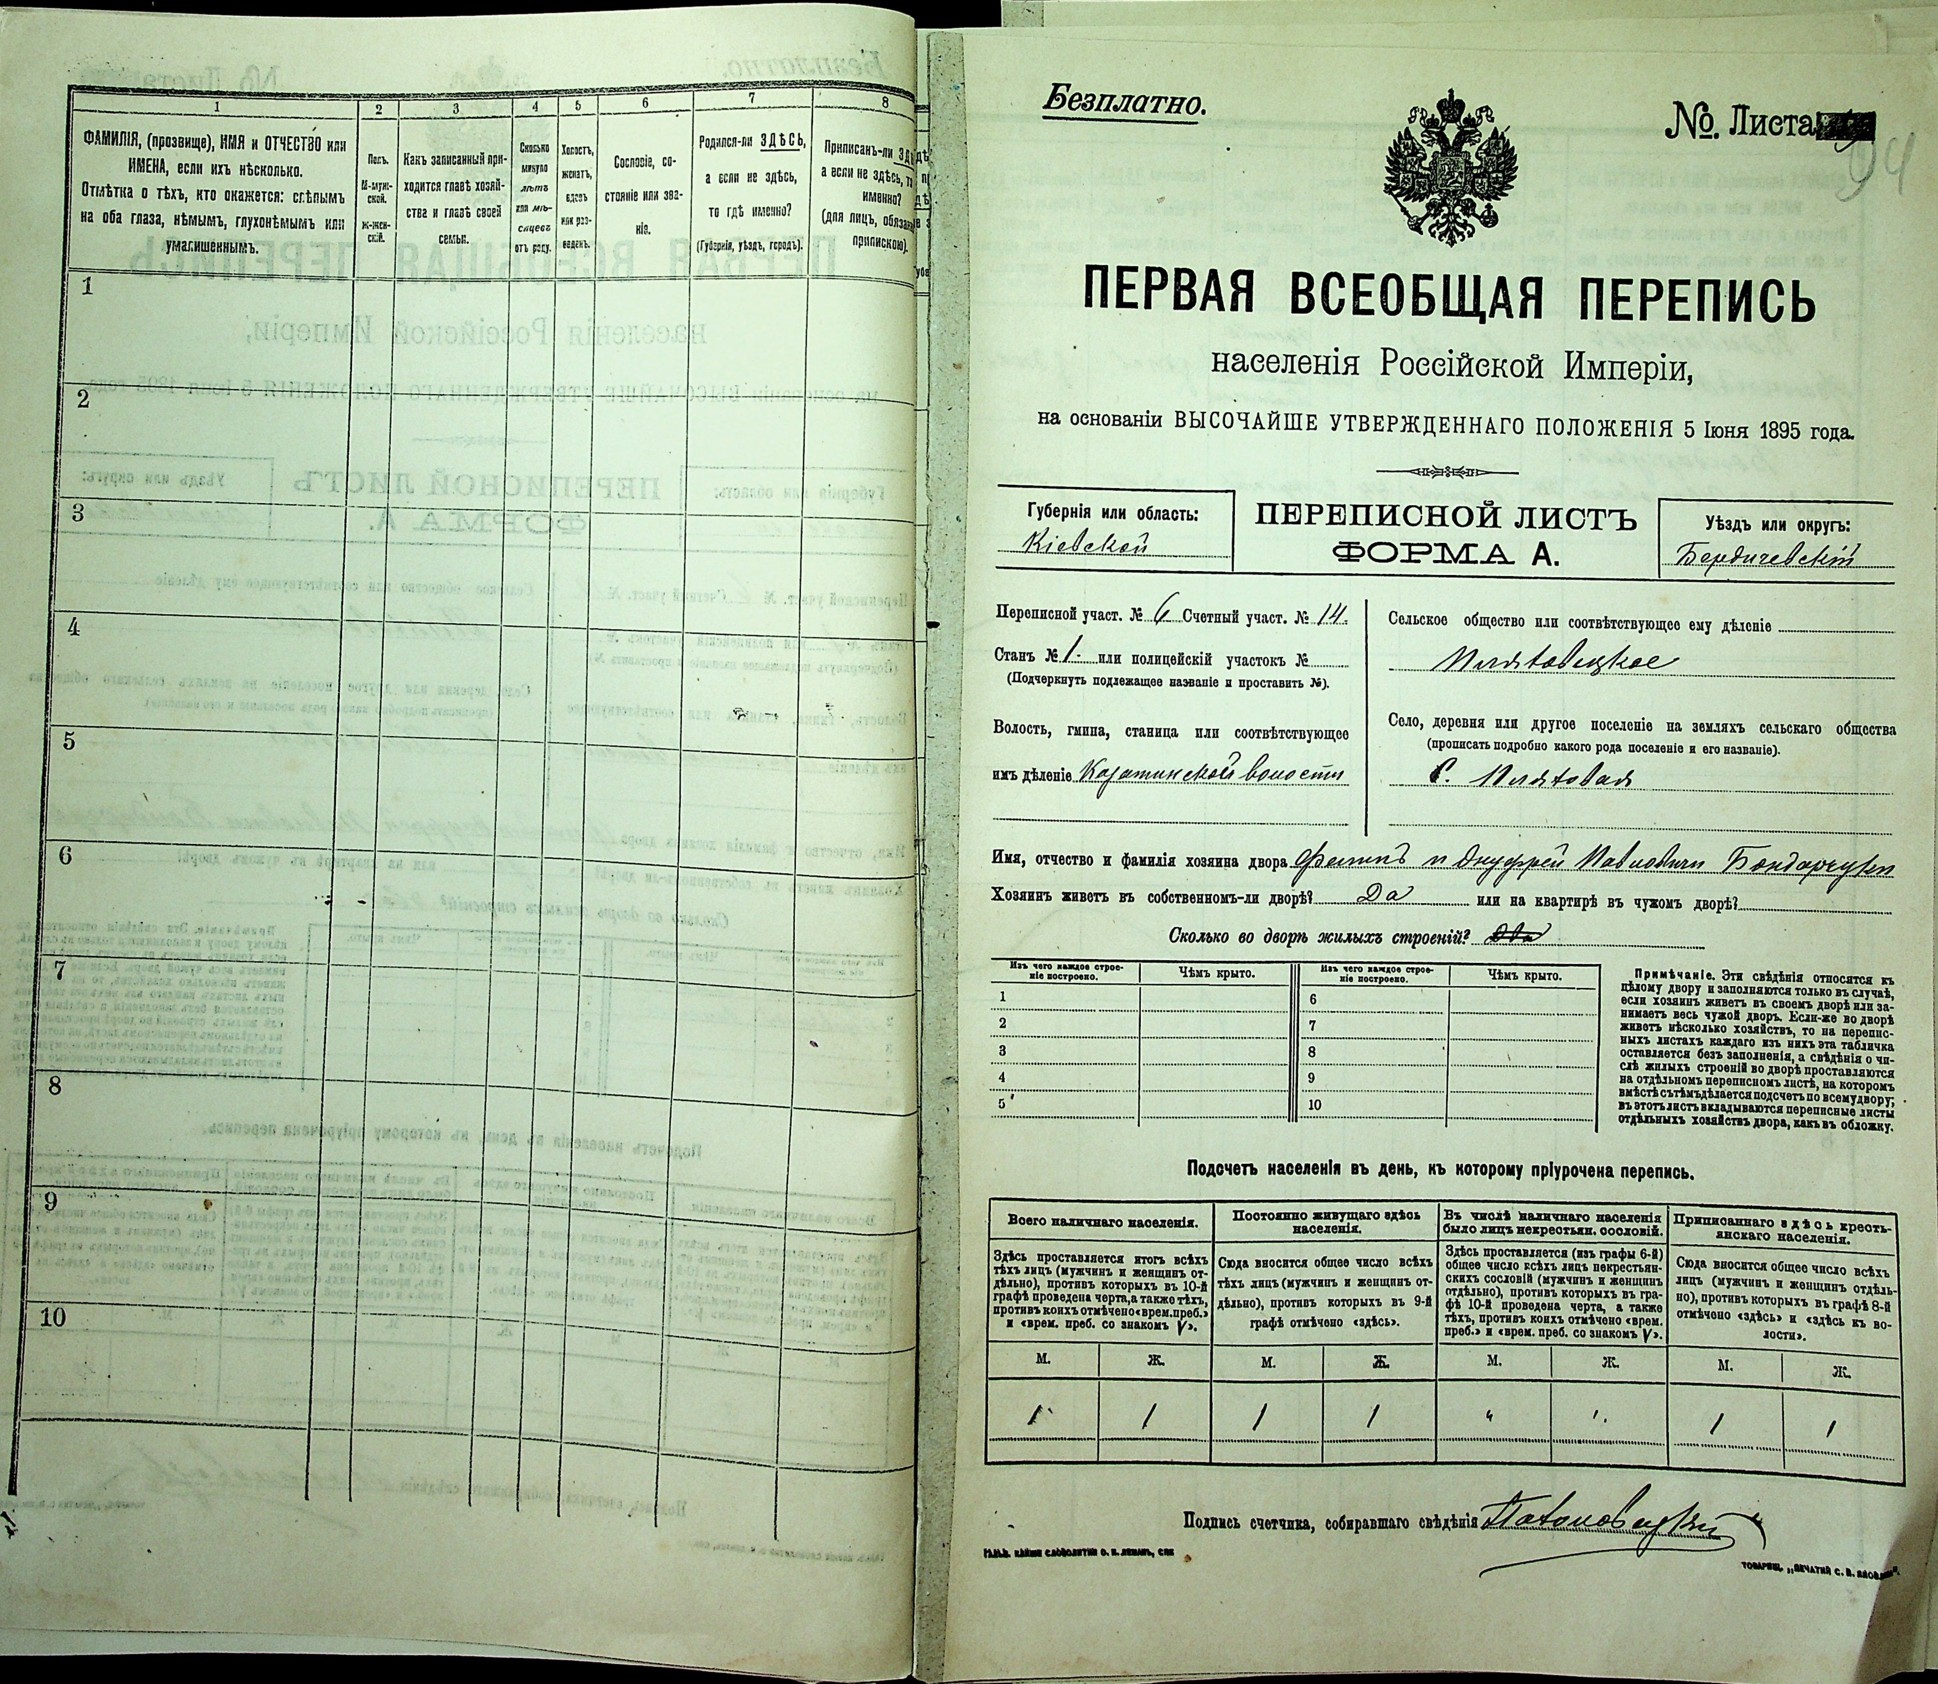 1
2
3
4
5
6
7
8
ФАМИЛІЯ, (прозвище), ИМЯ и ОТЧЕСТВО или
ИМЕНА, если ихъ нѣсколько.
Отмѣтка о тѣхъ, кто окажется: слѣпымъ
на оба глаза, нѣмымъ, глухонѣмымъ или
умалишеннымъ.
Полъ.
М-муж-
ской.
Ж-жен-
скій.
Какъ записанный при-
ходится главѣ хозяй-
ства и главѣ своей
семьи.
Сколько
минуло
лѣтъ
или мѣ-
сяцевъ
отъ роду.
Холостъ,
женатъ,
вдовъ
или раз-
веденъ.
Сословіе, со-
стояніе или зва-
ніе.
Родился-ли ЗДѢСЬ,
а если не здѣсь,
то гдѣ именно?
(Губернія, уѣздъ, городъ).
Приписанъ-ли
а если не здѣсь,
именно?
(для лицъ,
припискою).
1
2
3
4
5
6
7
8
9
10
Безплатно.
№. Листа
94
ПЕРВАЯ ВСЕОБЩАЯ ПЕРЕПИСЬ
населенія Россійской Имперіи,
на основаніи ВЫСОЧАЙШЕ УТВЕРЖДЕННАГО ПОЛОЖЕНІЯ 5 Іюня 1895 года.
Губернія или область:
Кіевской
ПЕРЕПИСНОЙ ЛИСТЪ
ФОРМА А.
Уѣздъ или округъ:
Бердичевскій
Переписной участ. № 6 Счетный участ. № 14.
Станъ № 1. или полицейскій участокъ №
(Подчеркнуть подлежащее названіе и проставить №).
Волость, гмина, станица или соотвѣтствующее
имъ дѣленіе Казатинской волости
Сельское общество или соотвѣтствующее ему дѣленіе
Пляховецкое
Село, деревня или другое поселеніе на земляхъ сельскаго общества
(прописать подробно какого рода поселеніе и его названіе).
С. Пляховая
Имя, отчество и фамилія хозяина двора Филипъ и Онуфрей Павловичи Бондарчуки
Хозяинъ живетъ въ собственномъ-ли дворѣ? Да или на квартирѣ въ чужомъ дворѣ?
Сколько во дворѣ жилыхъ строеній? два
Изъ чего каждое строе-
ніе построено.
Чѣмъ крыто.
Изъ чего каждое строе-
ніе построено.
Чѣмъ крыто.
1
2
3
4
5
6
7
8
9
10
Примѣчаніе. Эти свѣдѣнія относятся къ
цѣлому двору и заполняются только въ случаѣ,
если хозяинъ живетъ въ своемъ дворѣ или за-
нимаетъ весь чужой дворъ. Если-же во дворѣ
живетъ нѣсколько хозяйствъ, то на перепис-
ныхъ листахъ каждаго изъ нихъ эта табличка
оставляется безъ заполненія, а свѣдѣнія о чи-
слѣ жилыхъ строеній во дворѣ проставляются
на отдѣльномъ переписномъ листѣ, на которомъ
вмѣстѣ съ тѣмъ дѣлается подсчетъ по всему двору;
въ этотъ листъ вкладываются переписные листы
отдѣльныхъ хозяйствъ двора, какъ въ обложку.
Подсчетъ населенія въ день, къ которому пріурочена перепись.
Всего наличнаго населенія.
Здѣсь проставляется итогъ всѣхъ
тѣхъ лицъ (мужчинъ и женщинъ от-
дѣльно), противъ которыхъ въ 10-й
графѣ проведена черта, а также тѣхъ,
противъ коихъ отмѣчено «врем. преб.»
и «врем. преб. со знакомъ V».
Постоянно живущаго здѣсь
населенія.
Сюда вносится общее число всѣхъ
тѣхъ лицъ (мужчинъ и женщинъ от-
дѣльно), противъ которыхъ въ 9-й
графѣ отмѣчено «здѣсь».
Въ числѣ наличнаго населенія
было лицъ некрестьян. сословій.
Здѣсь проставляется (изъ графы 6-й)
общее число всѣхъ лицъ некрестьян-
скихъ сословій (мужчинъ и женщинъ
отдѣльно), противъ которыхъ въ гра-
фѣ 10-й проведена черта, а также
тѣхъ, противъ коихъ отмѣчено «врем.
преб.» и «врем. преб. со знакомъ V».
Приписаннаго здѣсь кресть-
янскаго населенія.
Сюда вносится общее число всѣхъ
лицъ (мужчинъ и женщинъ отдѣль-
но), противъ которыхъ въ графѣ 8-й
отмѣчено «здѣсь» и «здѣсь къ во-
лости».
М. Ж. М. Ж. М. Ж. М. Ж.
1 1 1 1 " 1. 1 1
Подпись счетчика, собиравшаго свѣдѣнія